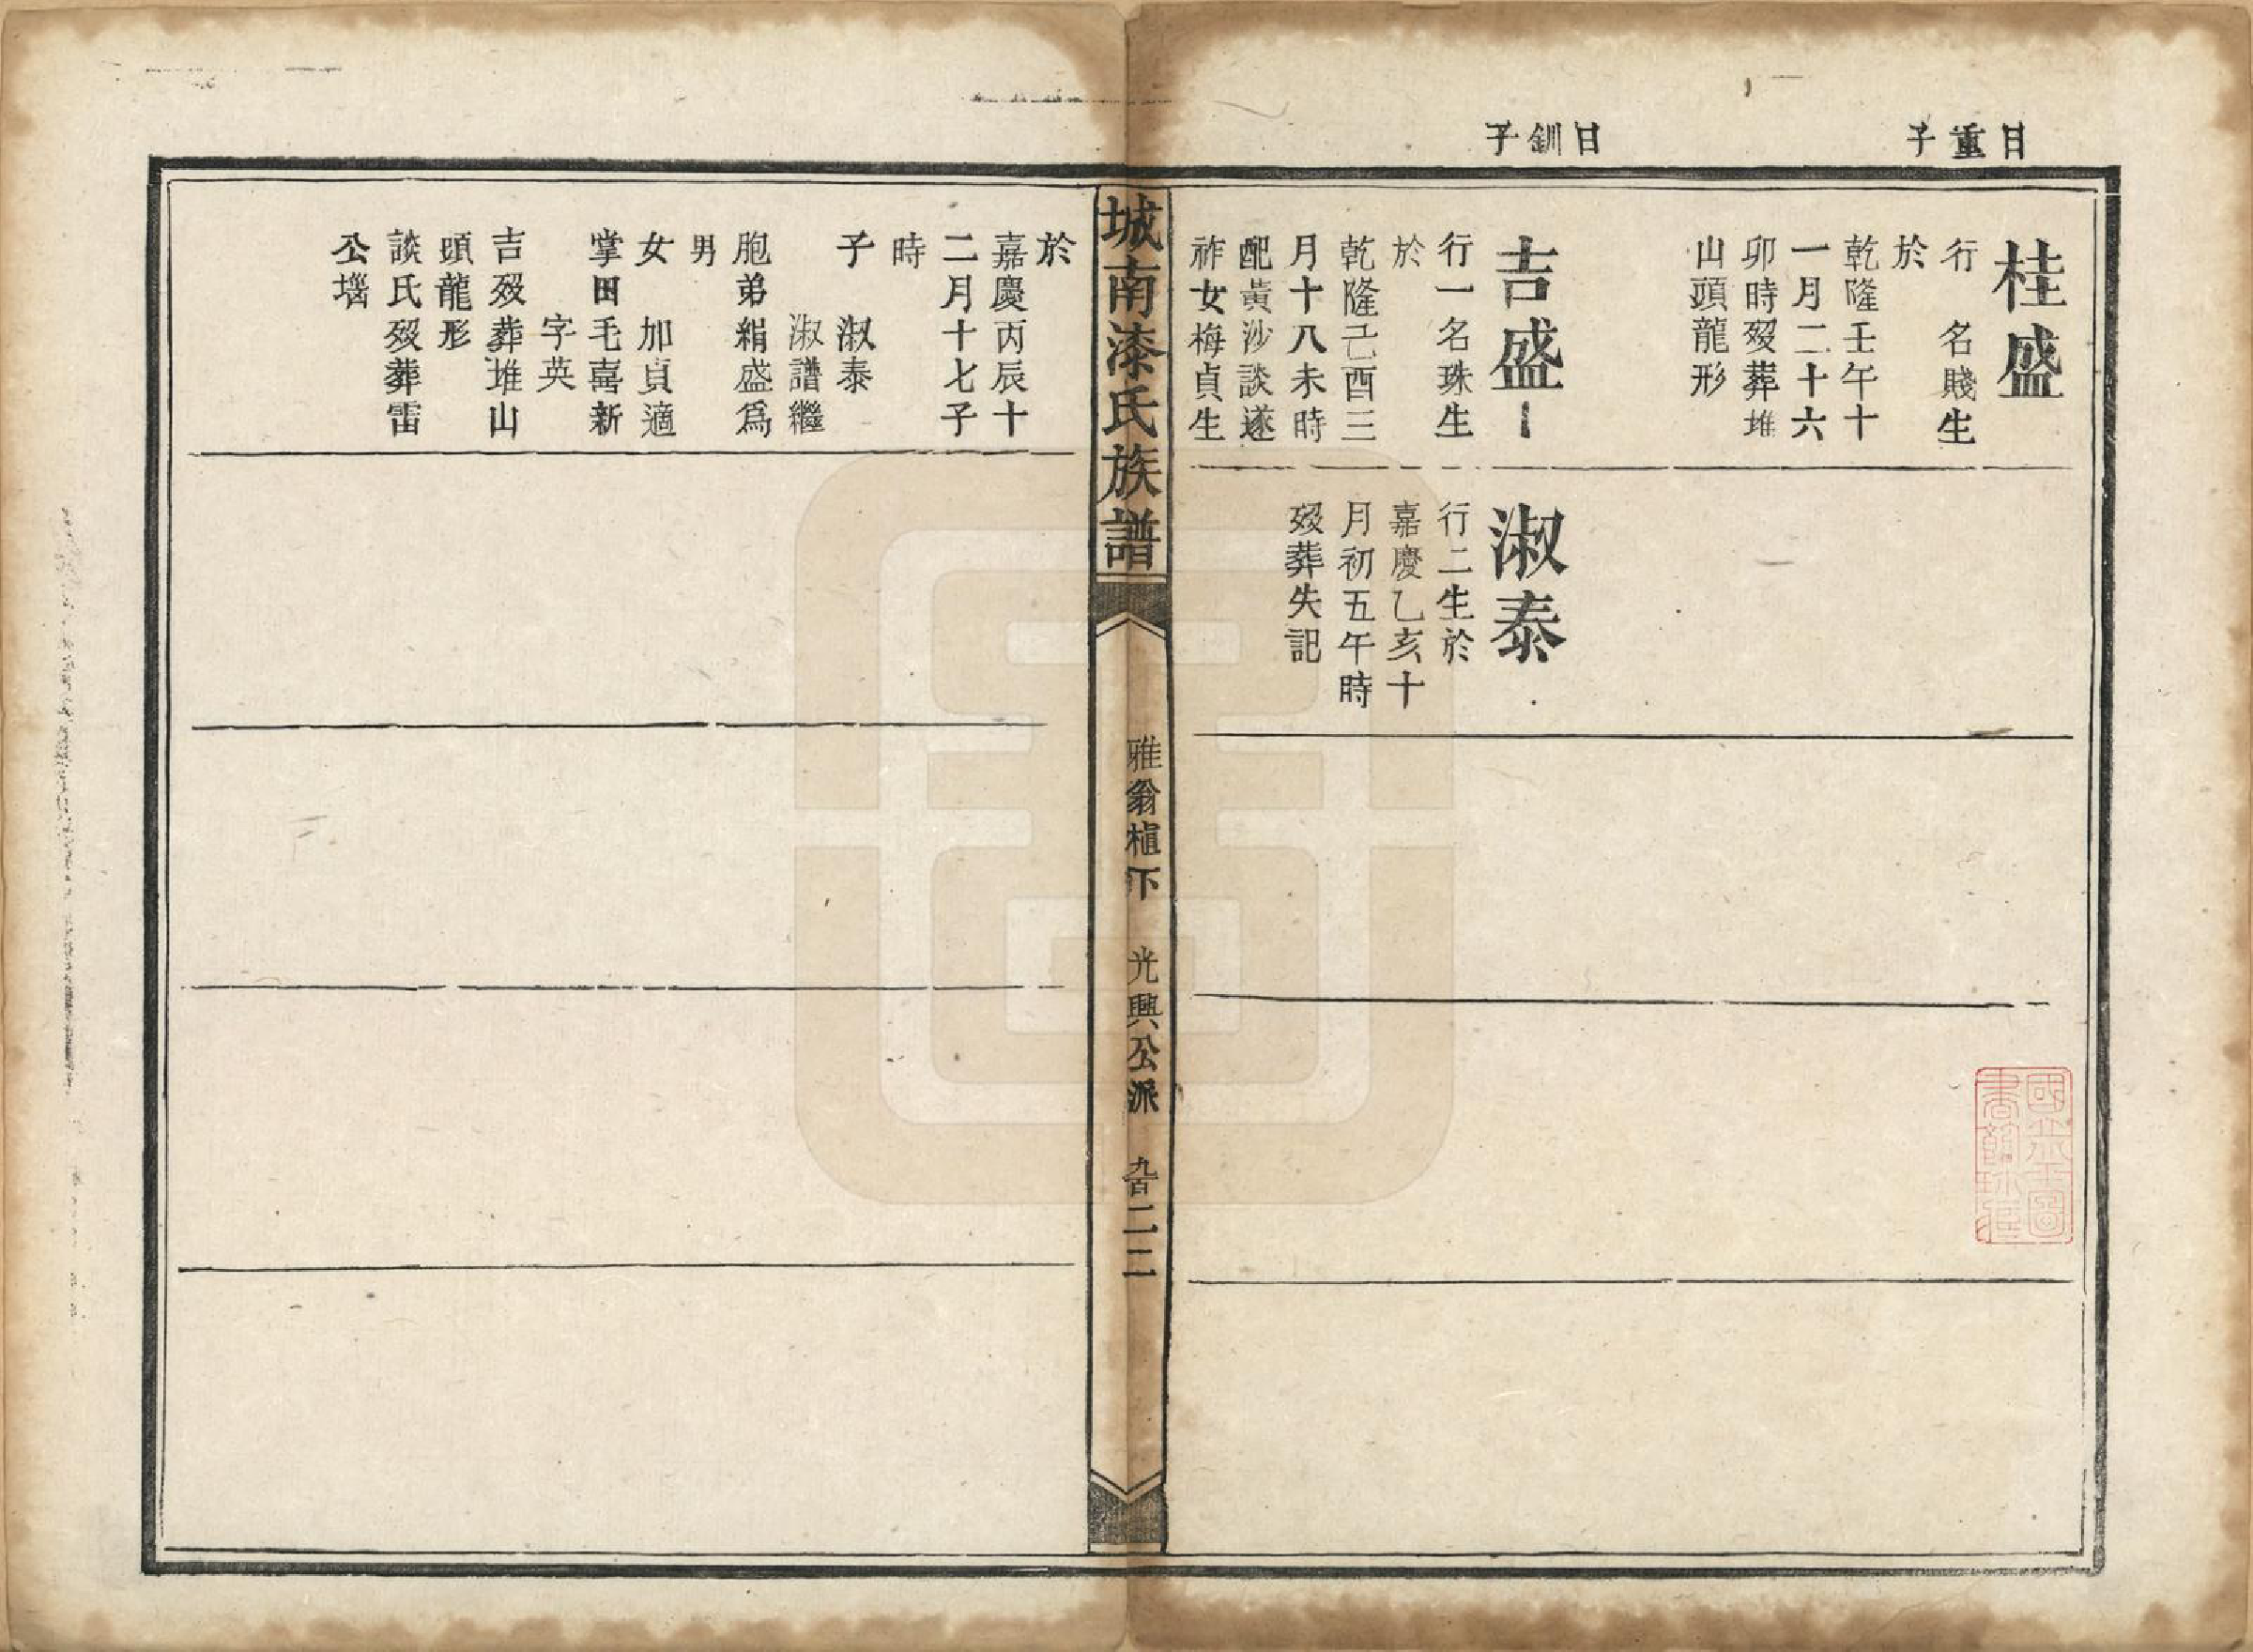 日重子
桂盛
行　名賤生
於
乾隆壬午十
一月二十六
卯時歿葬堆
山頭龍形
日釧子
吉盛
行一名珠生
於
乾隆己酉三
月十八未時
配黃沙談遂
祚女梅貞生
淑泰
行二生於
嘉慶乙亥十
月初五午時
歿葬失記
城南漆氏族譜
雅翁植下　光興公派　九百二二
於
嘉慶丙辰十
二月十七子
時
子　淑泰
淑譜繼
胞弟絹盛為
男
女　加貞適
掌田毛喜新
字英
吉歿葬堆山
頭龍形
談氏歿葬雷
公堖
國立北平圖
書館珍藏